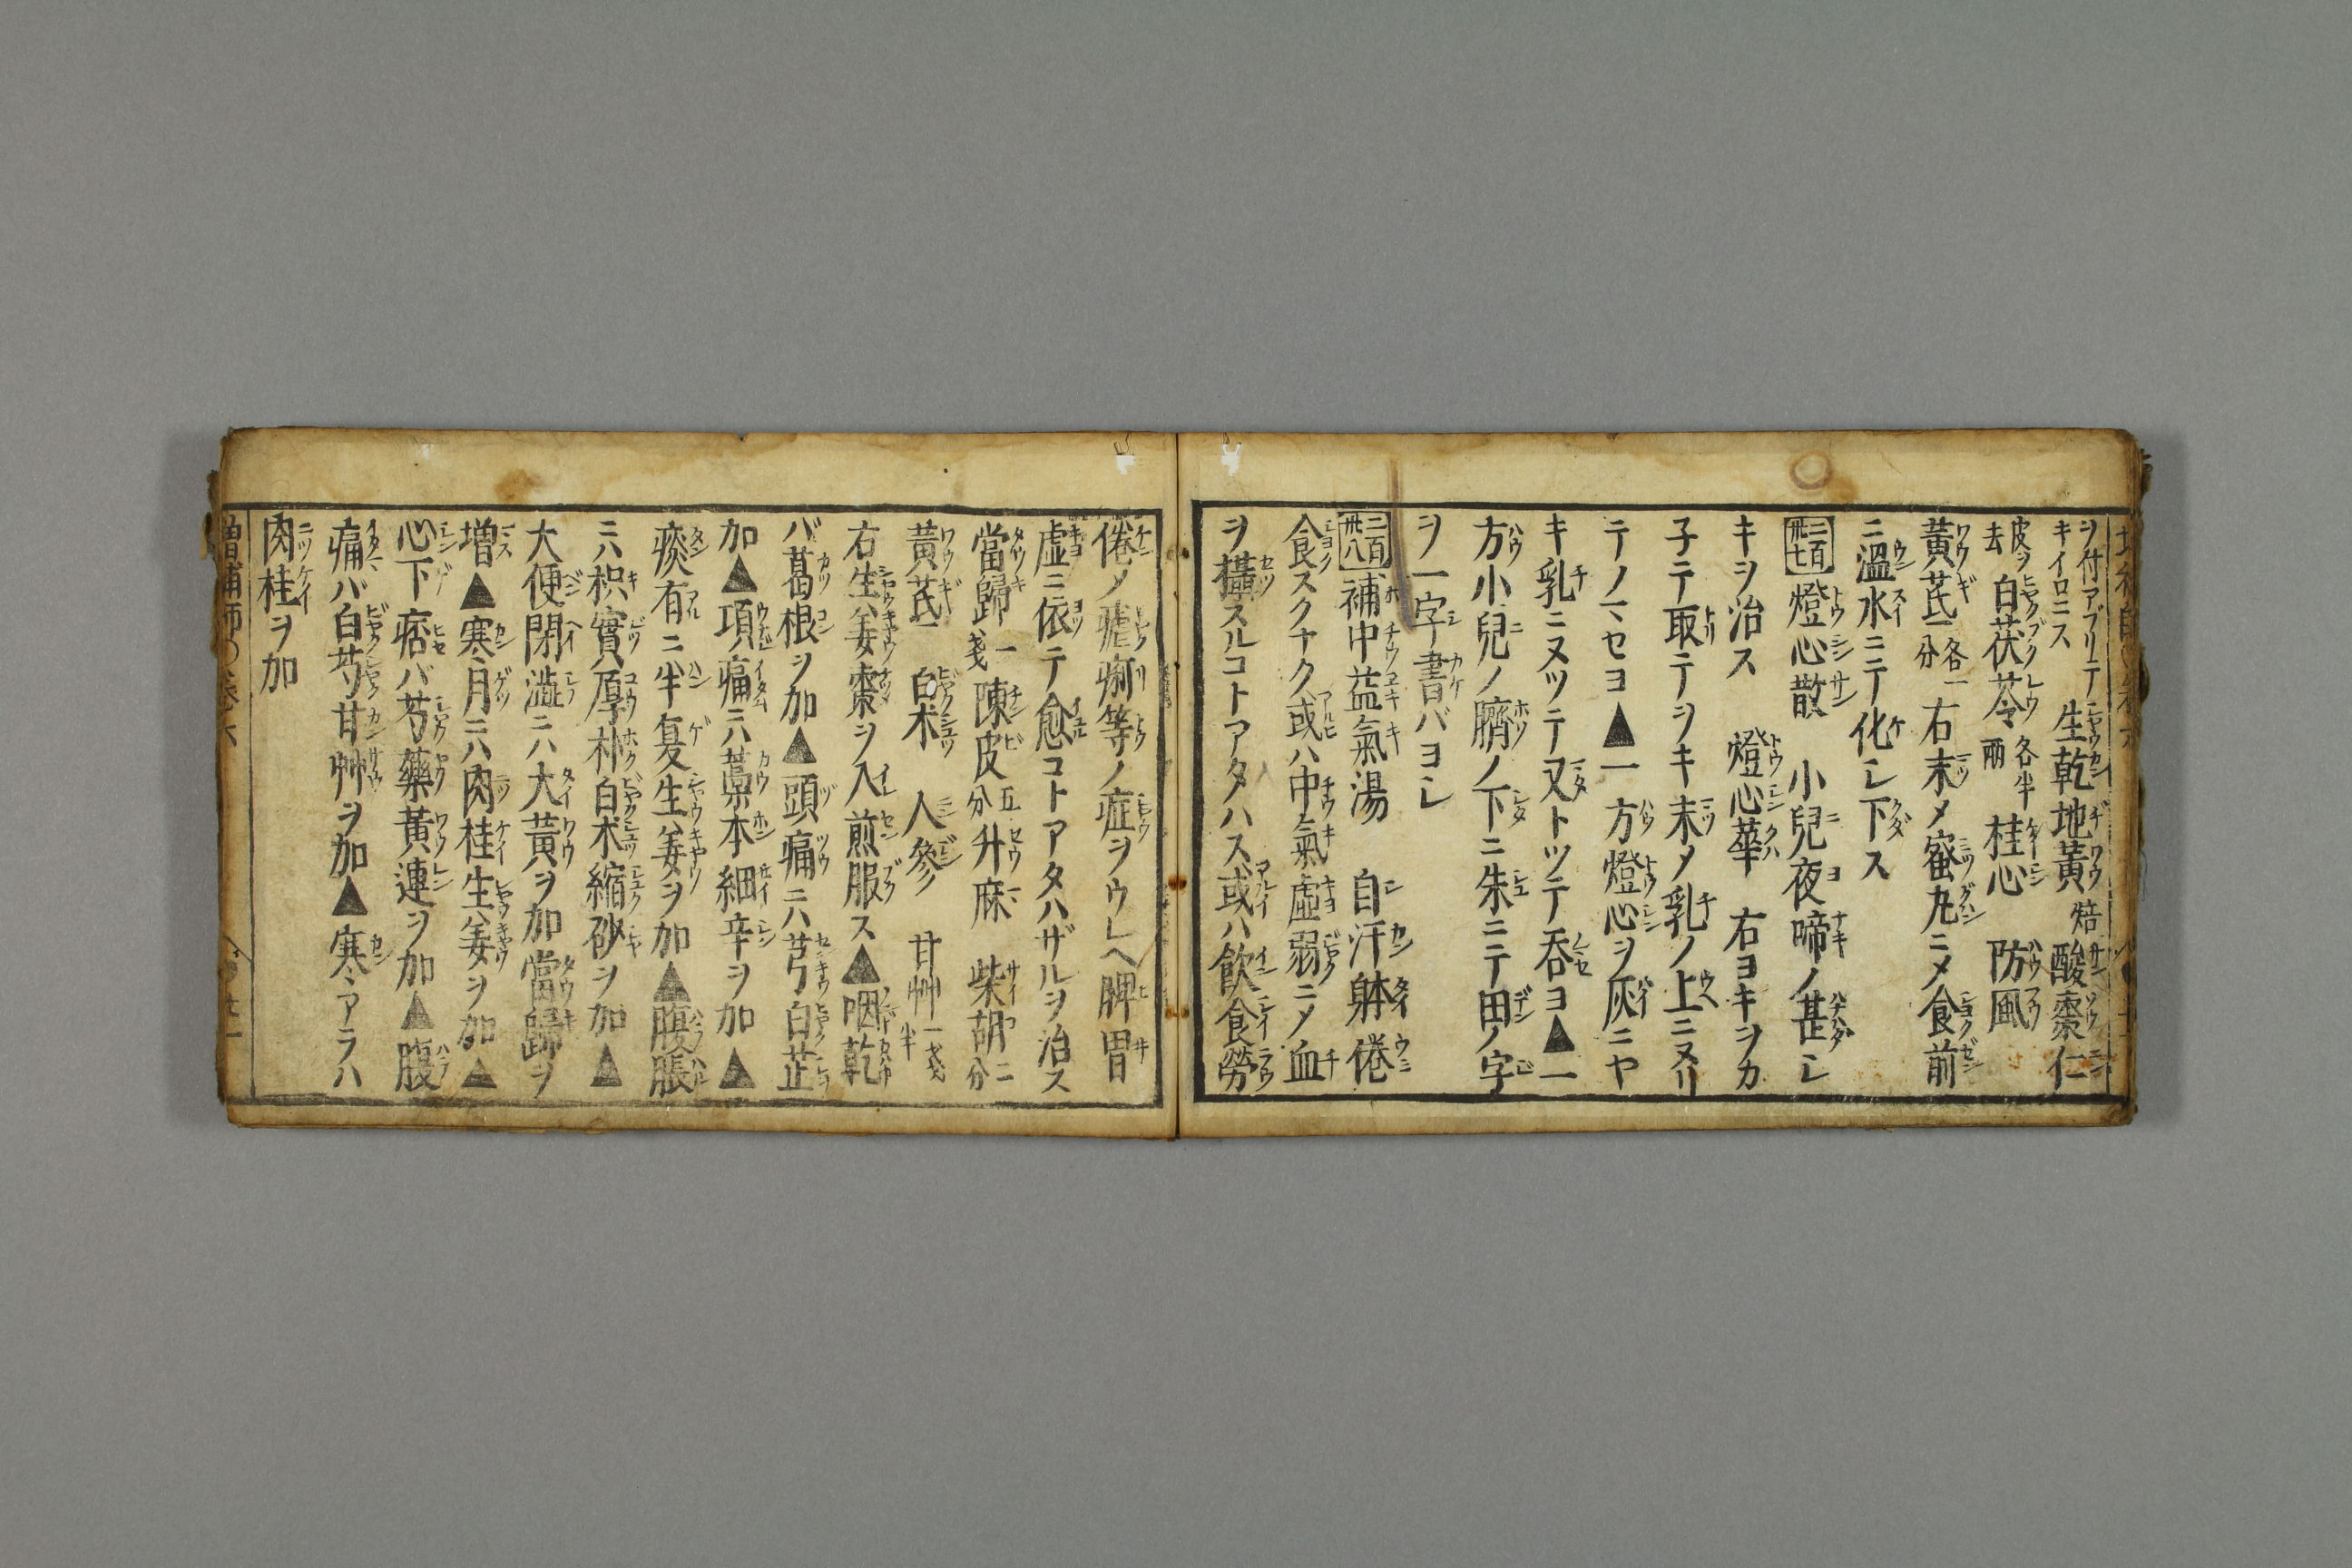 ヲ付アブリテキイロニス 生乾地黄 焙 酸棗仁
皮ヲ去 白茯苓 各半兩 桂心 防風
黄芪 各一分 右末メ蜜丸ニメ食前
ニ溫水ニテ化シ下ス
二百卅七 燈心散 小兒夜啼ノ甚シ
キヲ治ス 燈心華 右ヨキヲカ
子テ取テヲキ末メ乳ノ上ニヌリ
テノマセヨ▲一方燈心ヲ灰ニヤ
キ乳ニヌツテ又トツテ呑セヨ▲一
方小兒ノ臍ノ下ニ朱ニテ田ノ字
ヲ一字書バヨシ
二百卅八 補中益氣湯 自汗躰倦
食スクナク或ハ中氣虛弱ニメ血
ヲ攝スルコトアタハス或ハ飲食勞
倦ノ瘧痢等ノ症ヲウレヘ脾胃
虛ニ依テ愈コトアタハザルヲ治ス
當歸 一戔 陳皮 五分 升麻 柴胡 二分
黄芪 白朮 人參 甘艸 一戔半
右生姜棗ヲ入煎服ス▲咽乾
バ葛根ヲ加▲頭痛ニハ芎白芷
加▲項痛ニハ藁本細辛ヲ加▲
痰有ニ半夏生姜ヲ加▲腹脹
ニハ枳實厚朴白朮縮砂ヲ加▲
大便閉澁ニハ大黄ヲ加當歸ヲ
増▲寒月ニハ肉桂生姜ヲ加▲
心下痞バ芍藥黄連ヲ加▲腹
痛バ白芍甘艸ヲ加▲寒アラハ
肉桂ヲ加
増補師